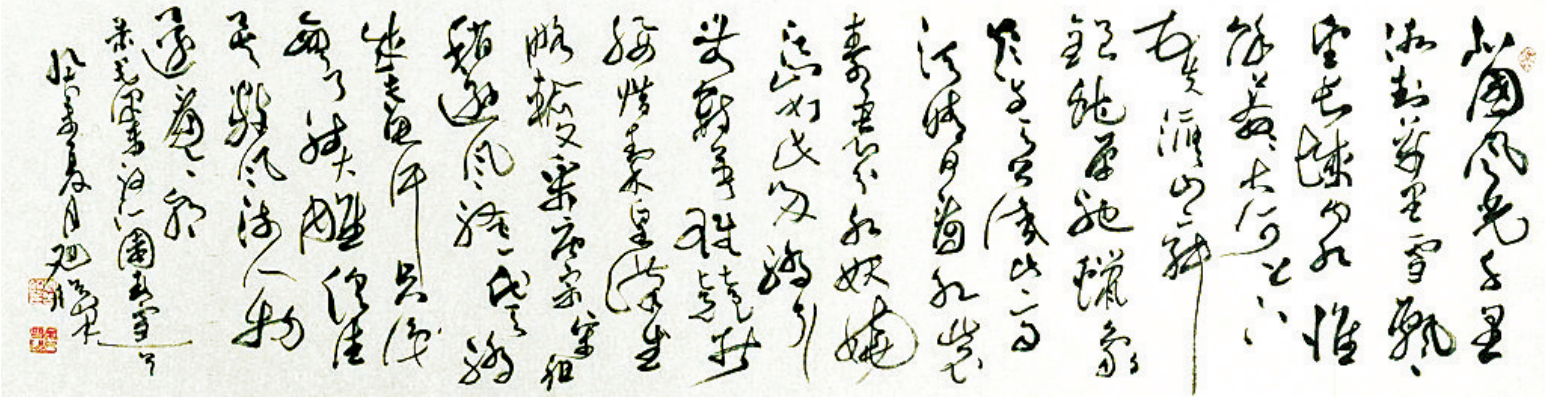 北國風光千里
冰封萬里雪飄
望長城內外惟
餘莽莽大河上下
頓失滔滔山舞
銀蛇原馳蠟象
欲与天公試比高
須晴日看紅裝
素裹分外妖嬈
江山如此多嬌引
無數英雄競折
腰惜秦皇漢武
略輸文采唐宗宋祖
稍遜風騷一代天驕
成吉思汗只識
彎弓射大雕俱往
矣數風流人物
還看今朝
毛澤東詞沁園春雪
夏月